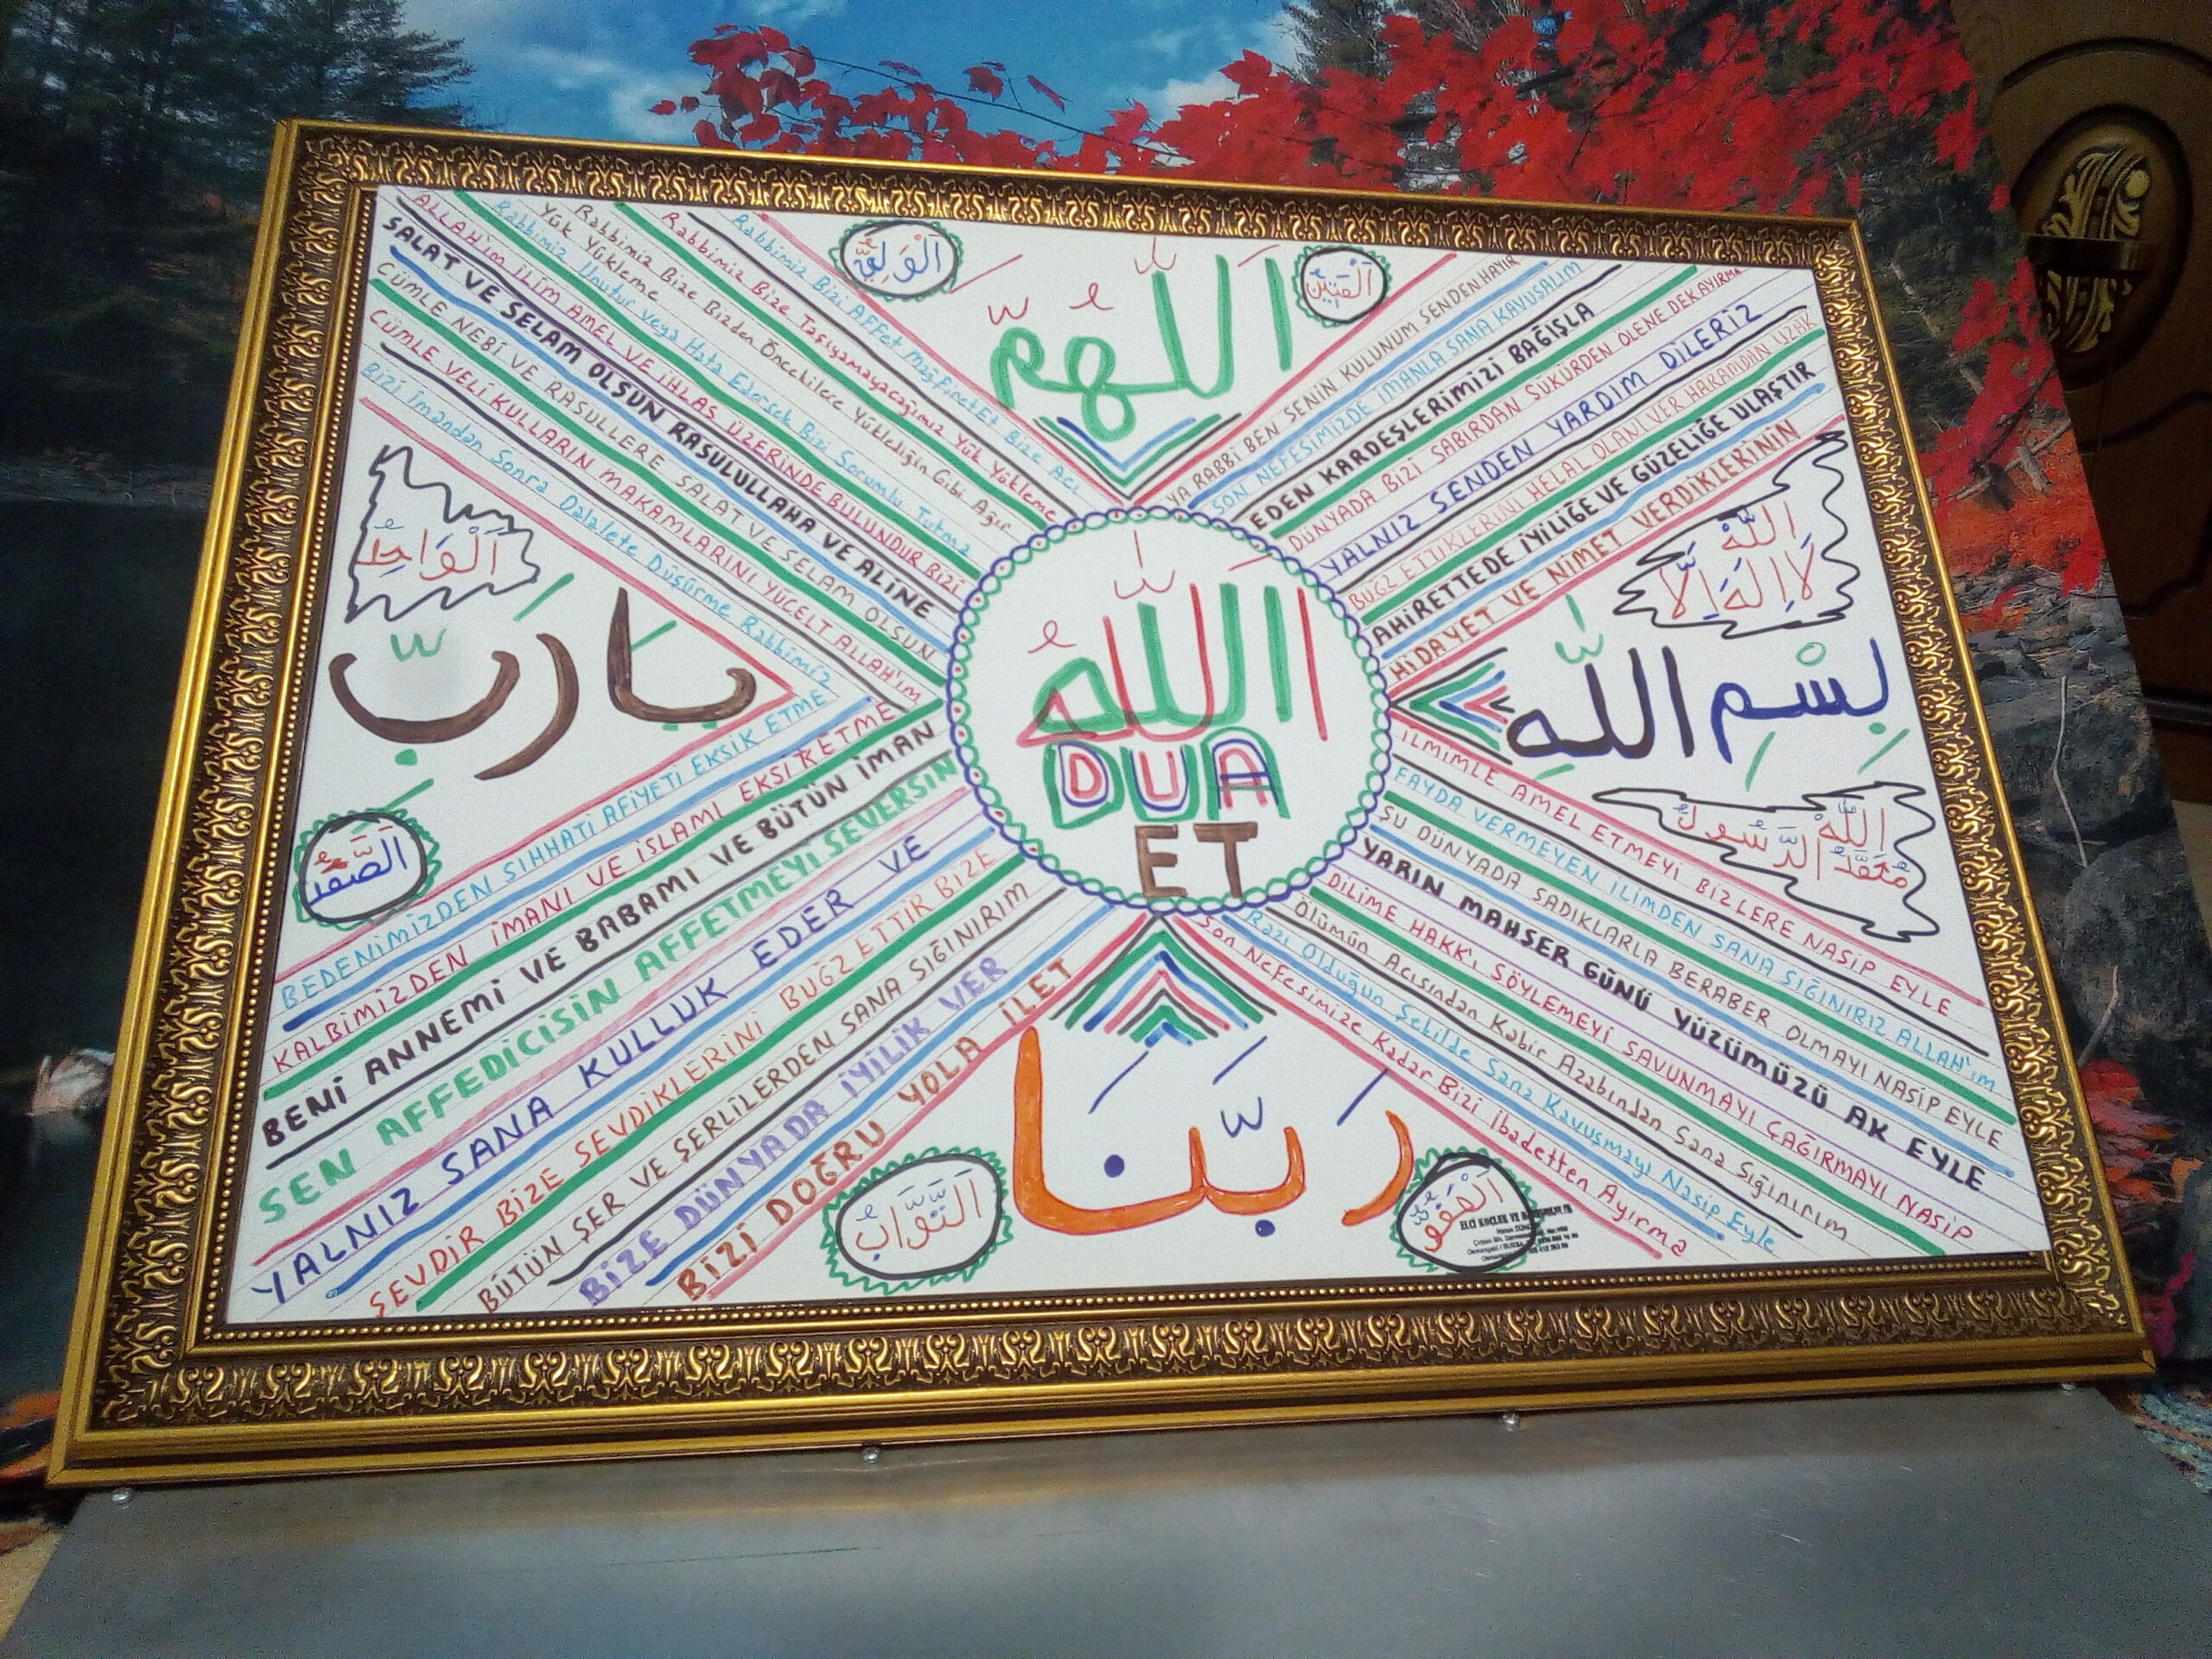 اَللّٰهُمَّ
اَلْمَتِينُ
Rabbimiz Bizi Affet Mağfiret Et Bize Acı
Rabbimiz Bize Taşıyamayacağımız Yük Yükleme
Rabbimiz Bize Bizden Öncekilere Yüklediğin Gibi Ağır
Yük Yükleme
Rabbimiz Unutur veya Hata Edersek Bizi Sorumlu Tutma
ALLAH'IM İLİM AMEL VE İHLAS ÜZERİNDE BULUNDUR BİZİ
SALAT VE SELAM OLSUN RASULULLAHA VE ALİNE
CÜMLE NEBİ VE RASULLERE SALAT VE SELAM OLSUN
CÜMLE VELİ KULLARIN MAKAMLARINI YÜCELT ALLAH'IM
Bizi İmandan Sonra Dalalete Düşürme Rabbimiz
YA RABBİ BEN SENİN KULUNUM SENDEN HAYIR
SON NEFESİMİZDE İMANLA SANA KAVUŞALIM
EDEN KARDEŞLERİMİZİ BAĞIŞLA
DÜNYADA BİZİ SABIRDAN ŞÜKÜRDEN ÖLENE DEK AYIRMA
YALNIZ SENDEN YARDIM DİLERİZ
BUĞZ ETTİKLERİNİ HELAL OLANI VER HARAMDAN UZAK
AHİRETTEDE İYİLİĞE VE GÜZELİĞE ULAŞTIR
HİDAYET VE NİMET VERDİKLERİNİN
اَلْوَاحِدُ
يَا رَبّ
اَلصَّمَدُ
اَللّٰهُ
DUA
ET
اَللّٰهُ
لَا اِلٰهَ اِلَّا
بِسْمِ اللّٰهِ
BEDENİMİZDEN SIHHATİ AFİYETİ EKSİK ETME
KALBİMİZDEN İMANI VE İSLAMI EKSİK ETME
BENİ ANNEMİ VE BABAMI VE BÜTÜN İMAN
SEN AFFEDİCİSİN AFFETMEYİ SEVERSİN
YALNIZ SANA KULLUK EDER VE
SEVDİR BİZE SEVDİKLERİNİ BUĞZ ETTİR BİZE
BÜTÜN ŞER VE ŞERLİLERDEN SANA SIĞINIRIM
BİZE DÜNYADA İYİLİK VER
BİZİ DOĞRU YOLA İLET
İLMİMLE AMEL ETMEYİ BİZLERE NASİP EYLE
FAYDA VERMEYEN İLİMDEN SANA SIĞINIRIZ ALLAH'ım
ŞU DÜNYADA SADIKLARLA BERABER OLMAYI NASİP EYLE
YARIN MAHŞER GÜNÜ YÜZÜMÜZÜ AK EYLE
DİLİME HAKK'I SÖYLEMEYİ SAVUNMAYI ÇAĞIRMAYI NASİP
Ölümün Acısından Kabir Azabından Sana Sığınırım
Razı Olduğun Şekilde Sana Kavuşmayı Nasip Eyle
Son Nefesimize Kadar Bizi İbadetten Ayırma
رَبَّنَا
اَلتَّوَّابُ